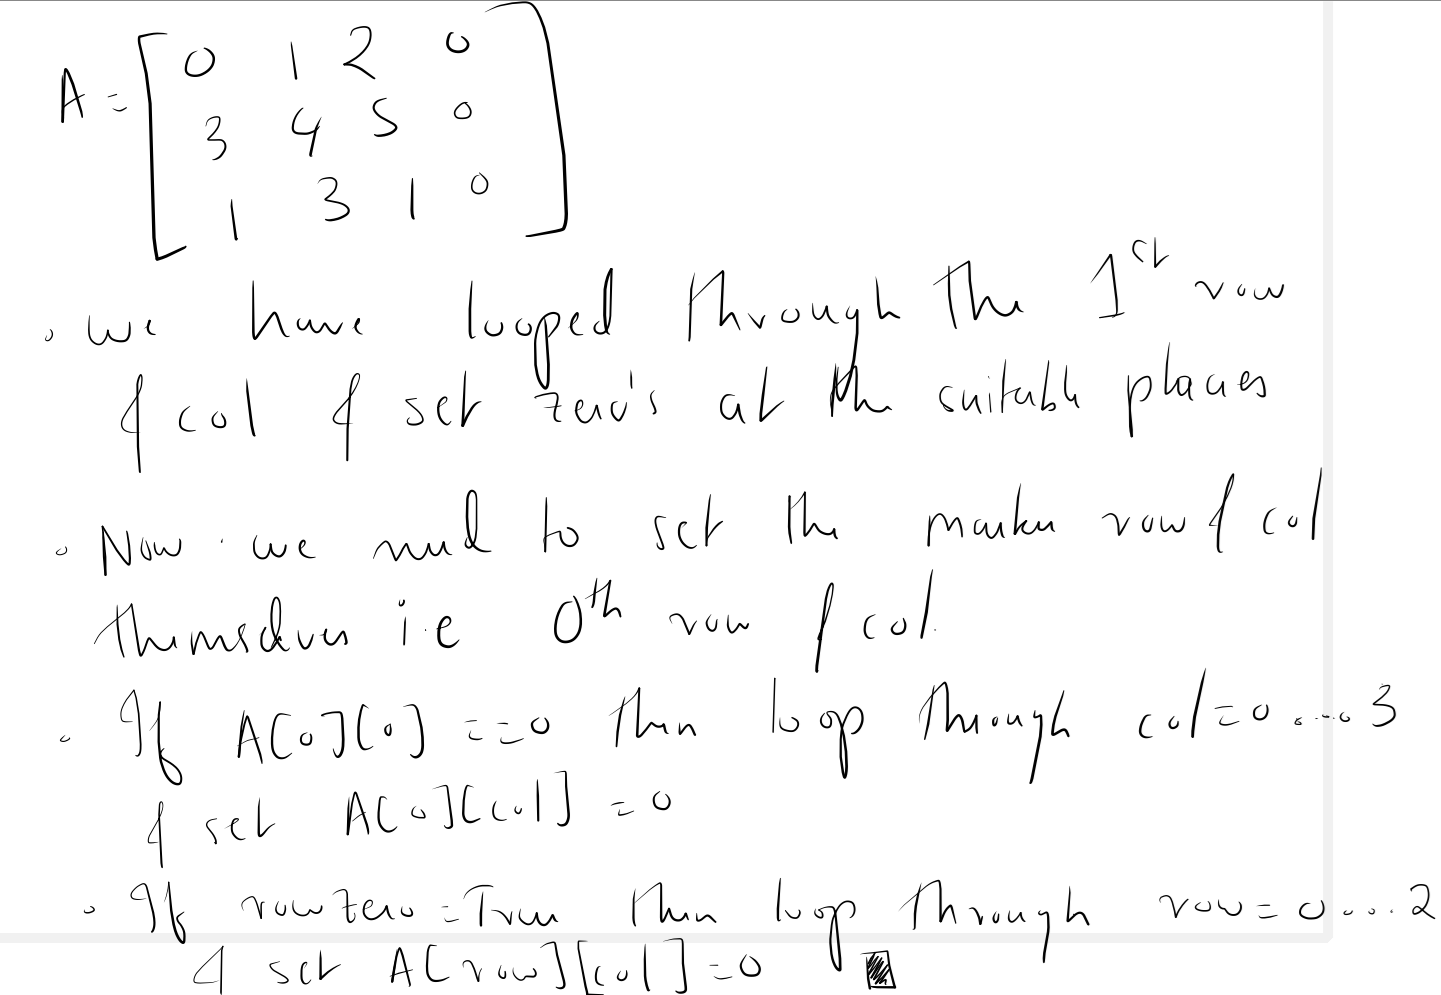 A = [ 0 1 2 0
3 4 5 0
1 3 1 0 ]
• we have looped through the 1st row
& col & set zero's at the suitable places
• Now we need to set the marker row & col
themselves i.e 0th row & col.
• If A[0][0] == 0 then loop through col = 0 .... 3
& set A[0][col] = 0
• If rowZero = True then loop through row = 0 ... 2
& set A[row][col] = 0